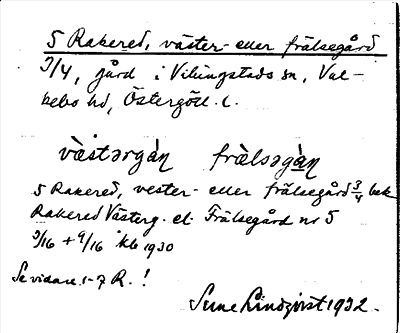 5 Rakered, väster- eller frälsegård
3/4, gård i Vikingstads sn, Val-
kebo hd, Östergötl. l.
vä̀stərgàn frä̀lsəgàn
5 Rakered, vester- eller frälsegård 3/4 bek
Rakered Västerg. et. Frälsegård nr 5
3/16 + 9/16 kb 1930
Se vidare 1-7 R. !
Sune Lindqvist 1932.